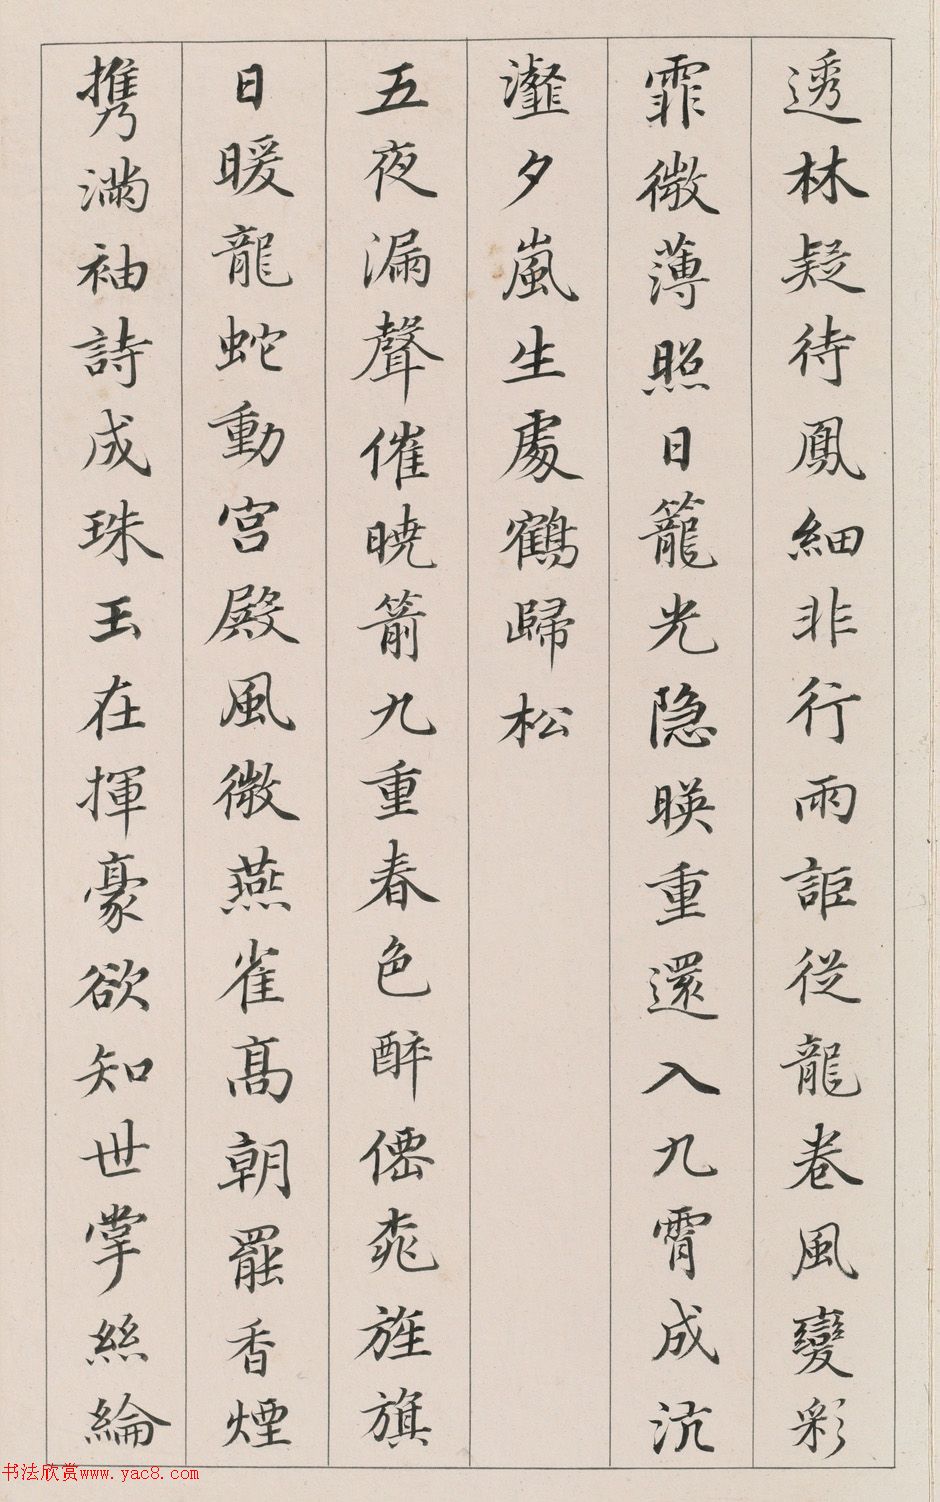 透林疑待鳳細非行雨詎從龍卷風變彩
霏微薄照日籠光隐暎重還入九霄成沆
瀣夕嵐生處鶴歸松
五夜漏聲催暁箭九重春色醉僊桃旌旗
日暖龍蛇動宫殿風微燕雀髙朝罷香煙
携滿袖詩成珠玉在揮豪欲知世掌絲綸
书法欣赏www.yac8.com